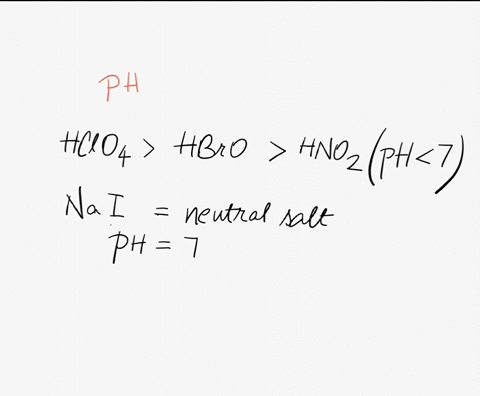 PH
HClO4 > HBrO > HNO2 (pH<7)
NaI = neutral salt
pH = 7